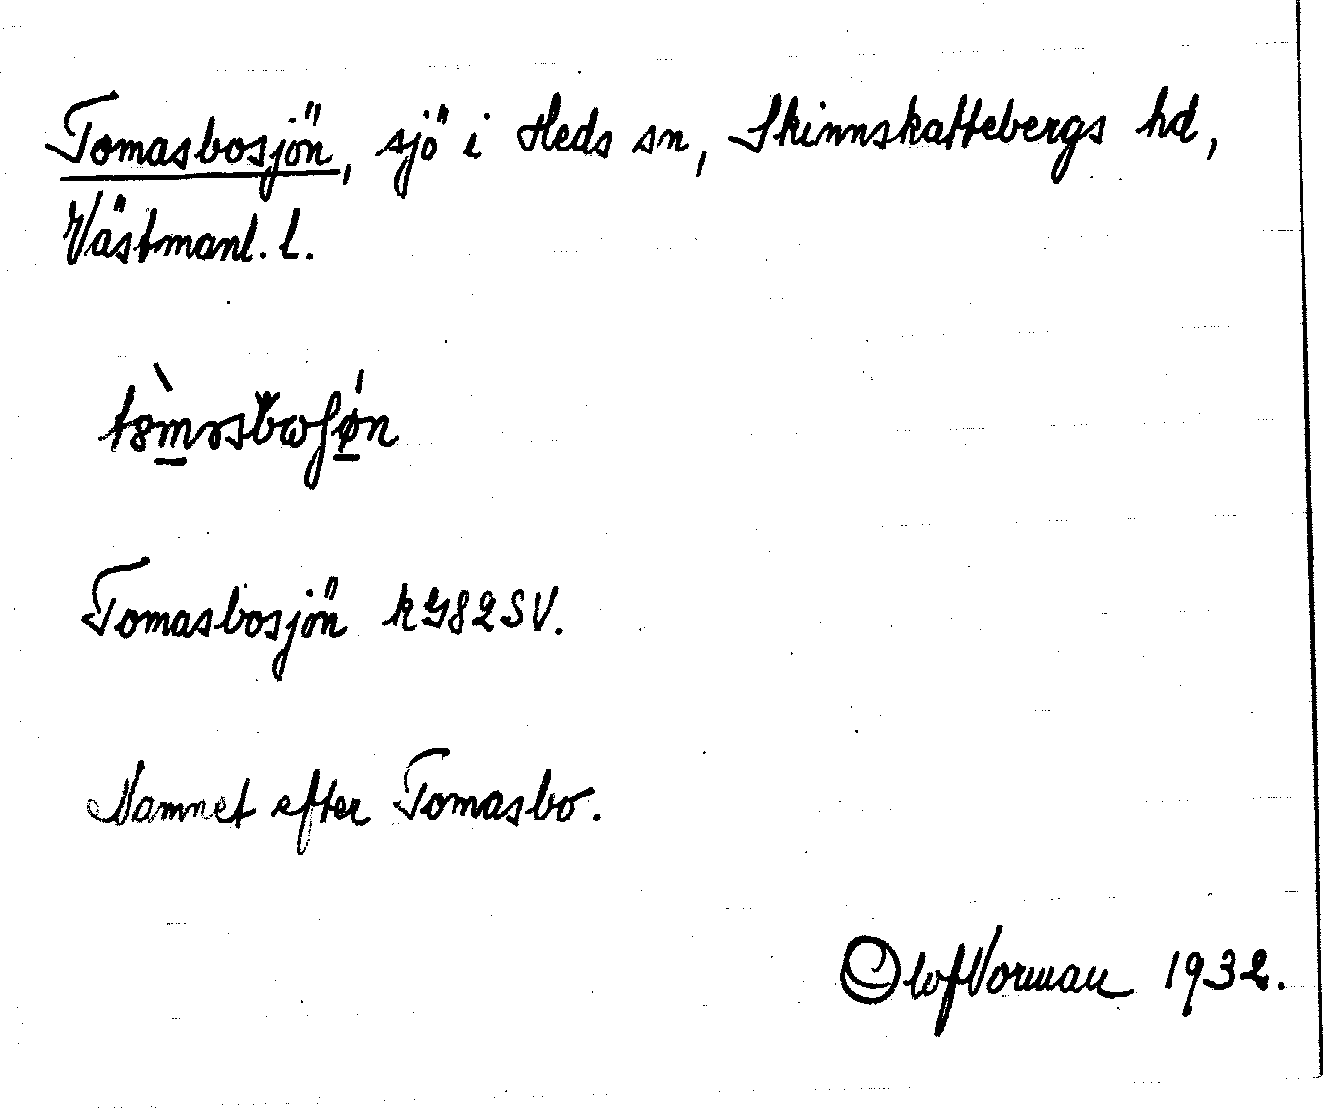 Tomasbosjön, sjö i Heds sn, Skinnskattebergs hd,
Västmanl. l.
Tomasbosjön k G82SV.
Namnet efter Tomasbo.
Olof Vorman 1932.